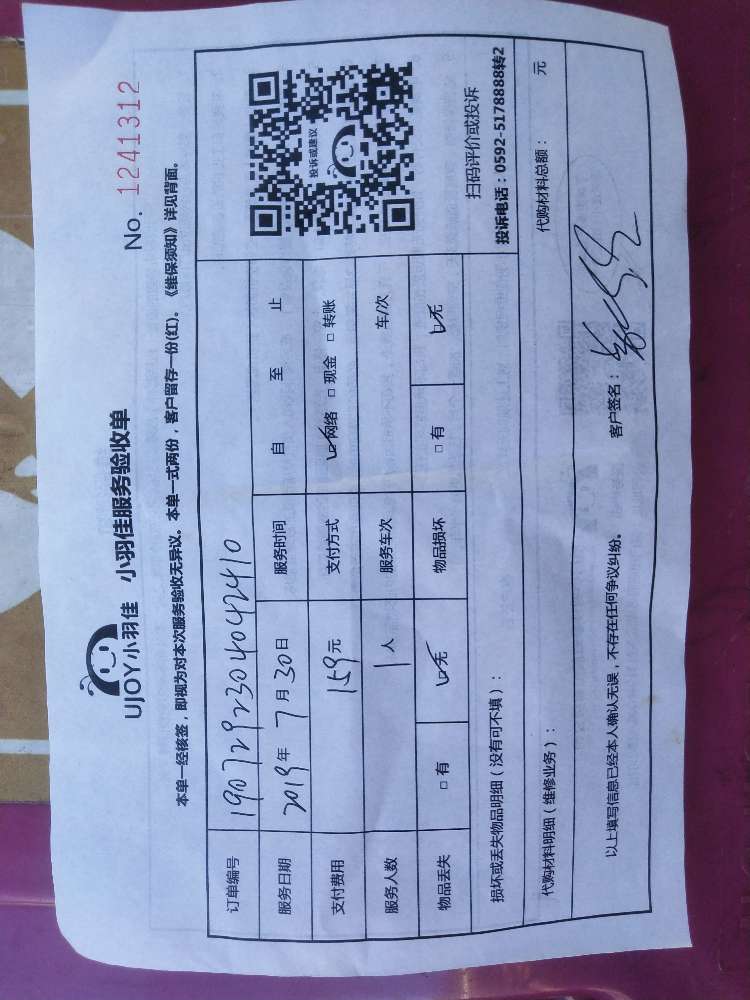 UJOY小羽佳 小羽佳服务验收单
No. 1241312
本单一经核签，即视为对本次服务验收无异议。本单一式两份，客户留存一份(红)。《维保须知》详见背面。
订单编号 19072923040424 10
服务日期 2019年 7月 30日 服务时间 自 至 止
支付费用 159元 支付方式 ☑网络 □现金 □转账
服务人数 1人 服务车次 车/次
物品丢失 □有 ☑无 物品损坏 □有 ☑无
投诉或建议
扫码评价或投诉
投诉电话：0592-5178888转2
损坏或丢失物品明细（没有可不填）：
代购材料明细（维修业务）： 代购材料总额： 元
以上填写信息已经本人确认无误，不存在任何争议纠纷。 客户签名：